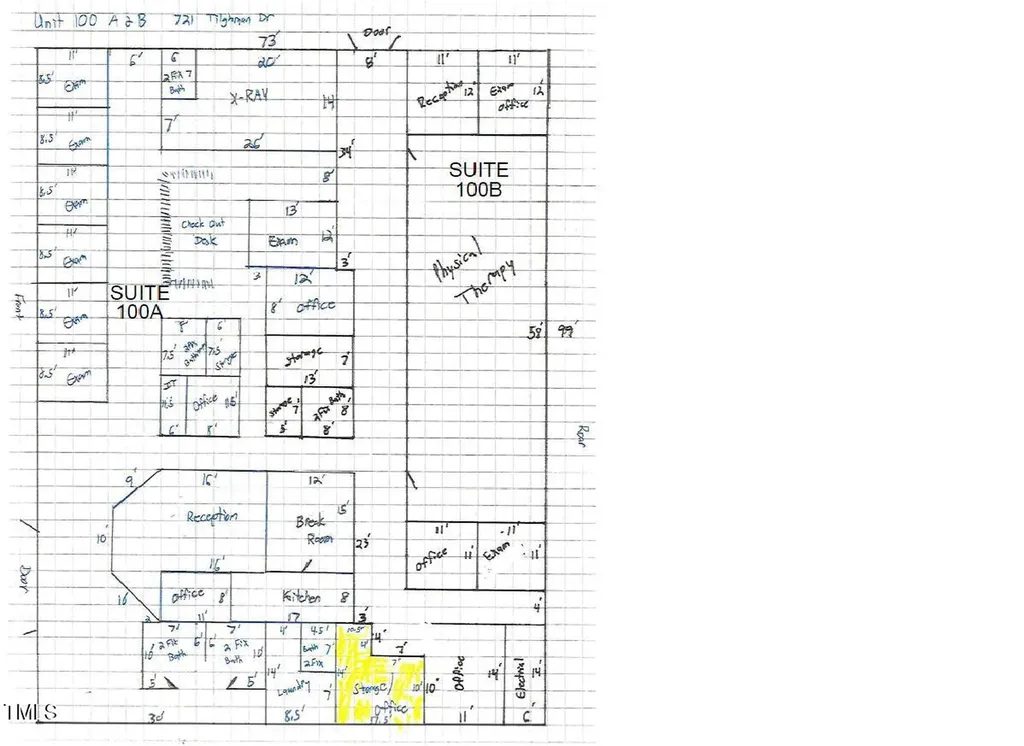 Unit 100 A & B 721 Tilghman Dr
73'
Door
11'
6'
6
20'
8'
11'
11'
8.5' Exam
2 Fix 7
Bath
X-RAY
14
Reception 12'
Exam 12'
office
11'
8.5' Exam
7'
25'
34'
11'
8.5'
Exam
8'
SUITE
100B
13'
Check Out
Desk
Exam 12'
11'
8.5' Exam
3'
Physical
Therapy
3
12'
11'
8.5'
Exam
SUITE
100A
8' office
Front
58' 99'
8' 6'
7.5' 7.5' Storage
Storage 7'
13'
11'
8.5' Exam
IT
11.5' Office 11.5'
6' 8'
Storage 7'
2 Fix Bath 8'
5' 8'
Rear
9'
16'
12'
Reception
Break
Room
15'
10'
23'
11' 11'
Office 11'
Exam 11'
16'
Door
10'
Office 8'
Kitchen 8
11' 17
3'
4'
2
7' 7'
4' 4.5'
10.5'
10' 2 Fix 6' 6' 2 Fix
Bath Bath 10'
Bath 7'
2 Fix
4' 4'
7'
7'
5' 5'
14'
Laundry 7'
14'
Storage/ 10' 10'
office
Office 14'
Electrical 14'
30'
8.5'
17.5'
11'
6'
TMLS